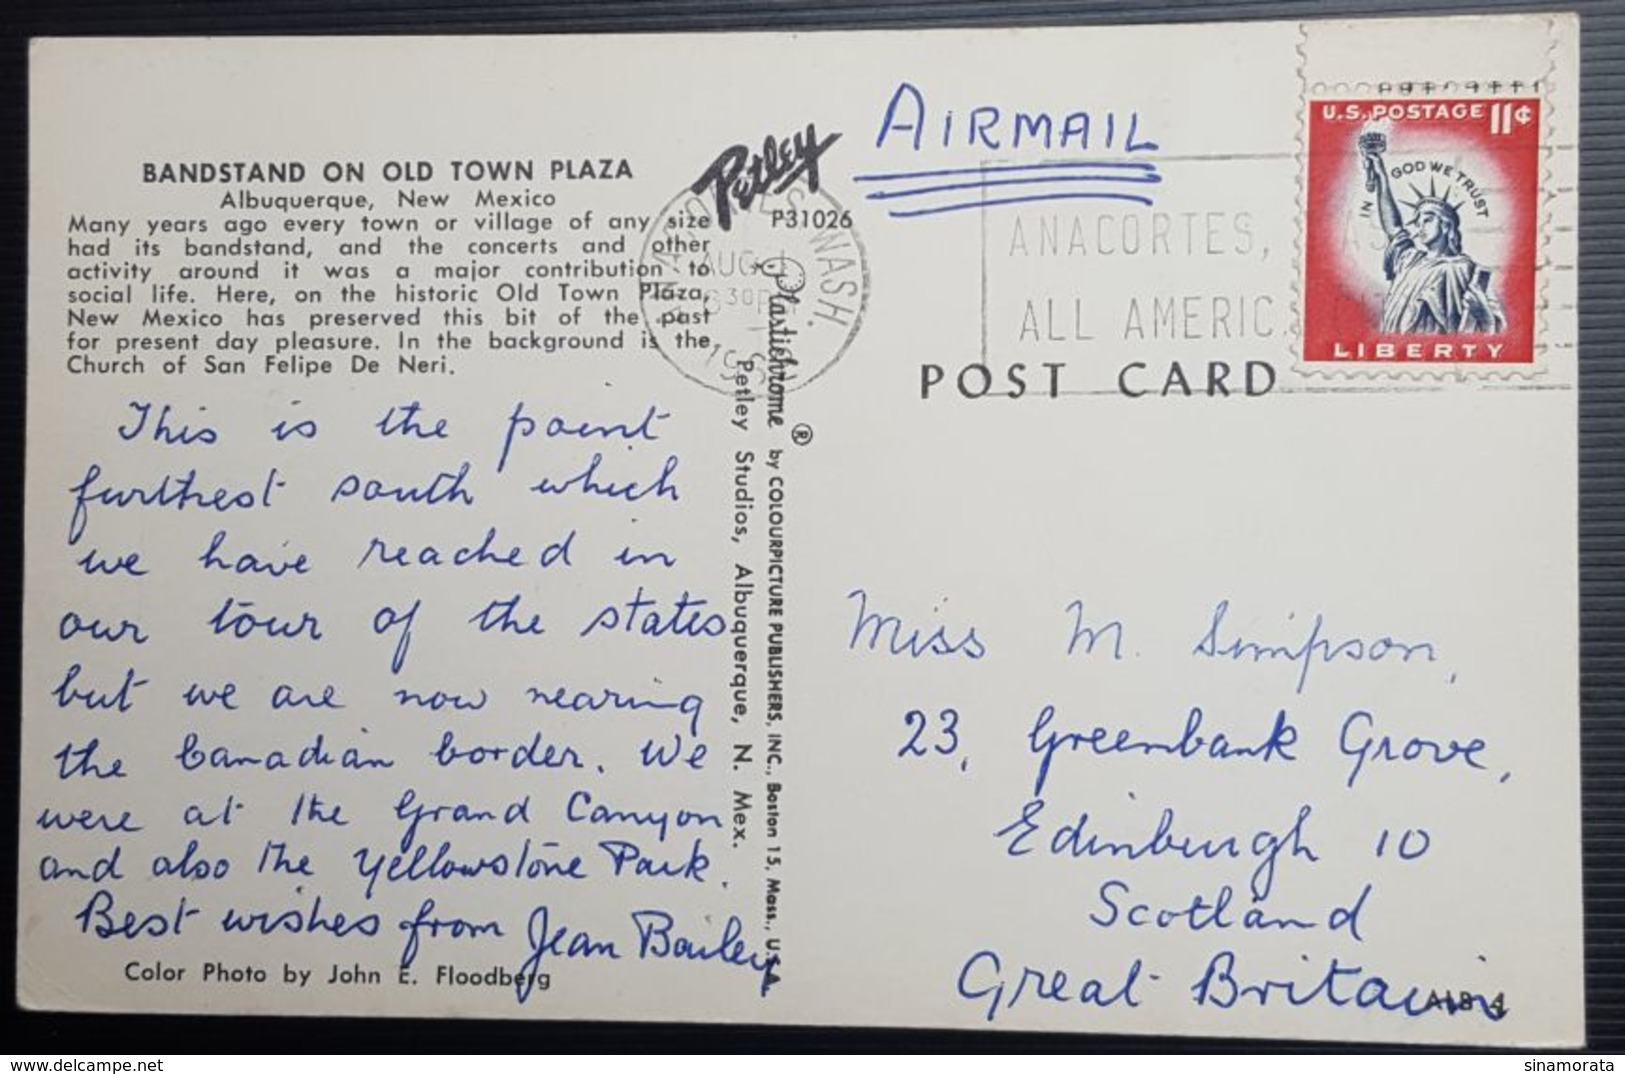 BANDSTAND ON OLD TOWN PLAZA
Albuquerque, New Mexico
Many years ago every town or village of any size
had its bandstand, and the concerts and other
activity around it was a major contribution to
social life. Here, on the historic Old Town Plaza,
New Mexico has preserved this bit of the past
for present day pleasure. In the background is the
Church of San Felipe De Neri.
This is the point
furthest south which
we have reached in
our tour of the states
but we are now nearing
the Canadian border. We
were at the Grand Canyon
and also the Yellowstone Park.
Best wishes from Jean Bailey
Color Photo by John E. Floodberg
Petley
P31026
Plastichrome ® by COLOURPICTURE PUBLISHERS, INC., Boston 15, Mass., U.S.A.
Petley Studios, Albuquerque, N. Mex.
WASH.
AUG
30 P
AIRMAIL
ANACORTES,
ALL AMERIC
U.S. POSTAGE 11¢
IN GOD WE TRUST
LIBERTY
POST CARD
Miss M. Simpson,
23, Greenbank Grove,
Edinburgh 10
Scotland
Great Britain
delcampe.net
sinamorata